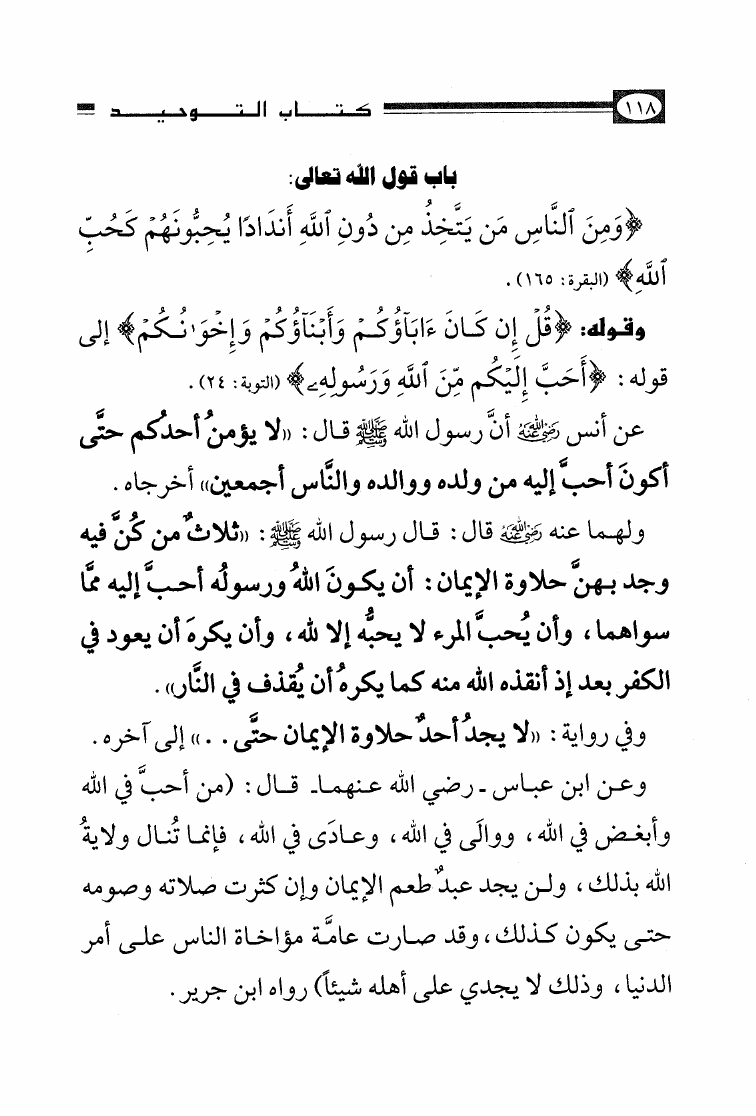 ١١٨ كتاب التوحيد
باب قول الله تعالى:
﴿وَمِنَ ٱلنَّاسِ مَن يَتَّخِذُ مِن دُونِ ٱللَّهِ أَندَادًا يُحِبُّونَهُمْ كَحُبِّ
ٱللَّهِ﴾ (البقرة: ١٦٥).
وقوله: ﴿قُلْ إِن كَانَ ءَابَآؤُكُمْ وَأَبْنَآؤُكُمْ وَإِخْوَٰنُكُمْ﴾ إلى
قوله: ﴿أَحَبَّ إِلَيْكُم مِّنَ ٱللَّهِ وَرَسُولِهِۦ﴾ (التوبة: ٢٤).
عن أنس رضي الله عنه أنَّ رسول الله ﷺ قال: «لا يؤمنُ أحدُكم حتَّى
أكونَ أحبَّ إليه من ولده ووالده والنَّاس أجمعين» أخرجاه.
ولهما عنه رضي الله عنه قال: قال رسول الله ﷺ: «ثلاثٌ من كُنَّ فيه
وجد بهنَّ حلاوة الإيمان: أن يكونَ اللهُ ورسولُه أحبَّ إليه ممَّا
سواهما، وأن يُحبَّ المرء لا يحبُّه إلا لله، وأن يكرهَ أن يعود في
الكفر بعد إذ أنقذه الله منه كما يكرهُ أن يُقذف في النَّار».
وفي رواية: «لا يجدُ أحدٌ حلاوة الإيمان حتَّى. . .» إلى آخره.
وعن ابن عباس ـ رضي الله عنهما ـ قال: (من أحبَّ في الله
وأبغض في الله، ووالَى في الله، وعادَى في الله، فإنما تُنال ولايةُ
الله بذلك، ولن يجد عبدٌ طعم الإيمان وإن كثرت صلاته وصومه
حتى يكون كذلك، وقد صارت عامَّة مؤاخاة الناس على أمر
الدنيا، وذلك لا يجدي على أهله شيئاً) رواه ابن جرير.